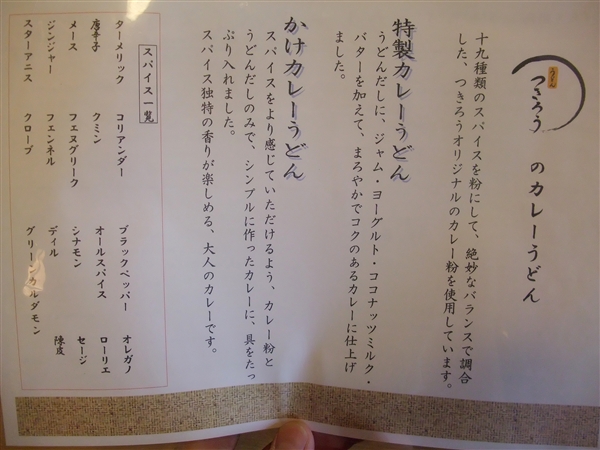 うどん
つきろう
のカレーうどん
十九種類のスパイスを粉にして、絶妙なバランスで調合
した、つきろうオリジナルのカレー粉を使用しています。
特製カレーうどん
うどんだしに、ジャム・ヨーグルト・ココナッツミルク・
バターを加えて、まろやかでコクのあるカレーに仕上げ
ました。
かけカレーうどん
スパイスをより感じていただけるよう、カレー粉と
うどんだしのみで、シンプルに作ったカレーに、具をたっ
ぷり入れました。
スパイス独特の香りが楽しめる、大人のカレーです。
スパイス一覧
ターメリック コリアンダー ブラックペッパー オレガノ
唐辛子 クミン オールスパイス ローリエ
メース フェヌグリーク シナモン セージ
ジンジャー フェンネル ディル 陳皮
スターアニス クローブ グリーンカルダモン